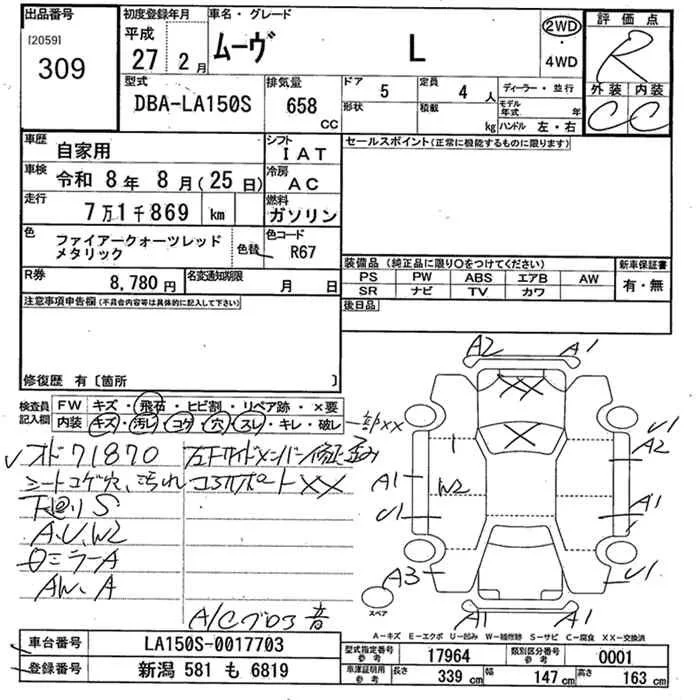 出品番号
[20591
309
初度登録年月
平成
27 2月
車名・グレード
ムーヴ L
2WD
・
4WD
評価点
R
外装 内装
C C
型式
DBA-LA150S
排気量
658 CC
ドア 5
形状
定員 4 人
積載 kg
ディーラー・並行
モデル年式 年
ハンドル 左・右
車歴 自家用
シフト IAT
車検 令和 8年 8月(25日)
冷房 AC
走行 7万1千869 km
燃料 ガソリン
色 ファイアークォーツレッド
メタリック
色替
色コード R67
R券 8,780円
名変通知期限 月 日
セールスポイント(正常に機能するものに限ります)
装備品(純正品に限り○をつけてください)
PS PW ABS エアB AW
SR ナビ TV カワ
新車保証書
有・無
後日品
注意事項申告欄(不具合内容等は具体的に記入して下さい)
修復歴 有〔箇所 〕
検査員
記入欄
FW キズ・飛石・ヒビ割・リペア跡・×要
内装 キズ・汚レ・コゲ・穴・スレ・キレ・破レ
オド71870
シートコゲ穴、汚れ
下廻りS
A.U.W2
ミラーA
AW.A
左Fサイドメンバー修正歪み
コアサポートXX
A/Cブロア音
A2 A1
XX
X
U1
A2
A1
W2
U1
A1
A3
U1
A1 A1
スペア
A-キズ E-エクボ U-凹み W-補修跡 S-サビ C-腐食 XX-交換済
車台番号 LA150S-0017703
登録番号 新潟 581 も 6819
型式指定番号
参考
17964
類別区分番号
参考
0001
車庫証明用
参考
長さ 339 cm 幅 147 cm 高さ 163 cm